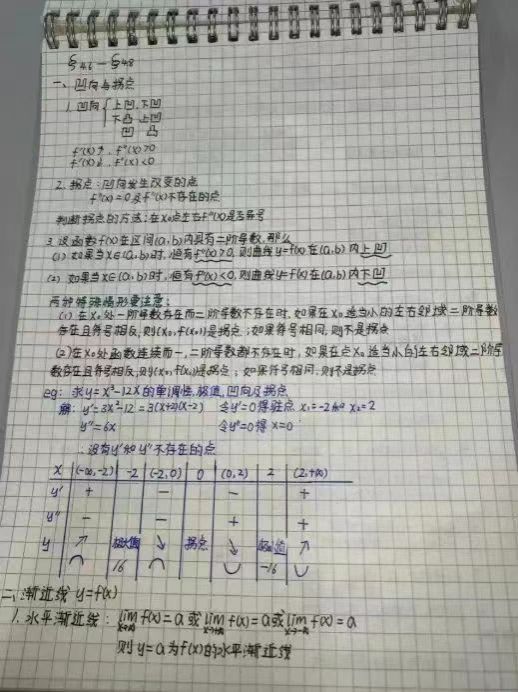 §4.6 — §4.8
一、凹向与拐点
1. 凹向 { 上凹、下凹
下凸 上凸
凹 凸
f'(x)↑、f''(x)>0
f'(x)↓、f''(x)<0
2. 拐点：凹向发生改变的点
f''(x)=0及f''(x)不存在的点
判断拐点的方法：在x₀点左右f''(x)是否异号
3. 设函数f(x)在区间(a,b)内具有二阶导数，那么
(1) 如果当x∈(a,b)时，恒有f''(x)>0，则曲线y=f(x)在(a,b)内上凹
(2) 如果当x∈(a,b)时，恒有f''(x)<0，则曲线y=f(x)在(a,b)内下凹
两种特殊情形要注意：
(1) 在x₀处一阶导数存在而二阶导数不存在时，如果在x₀适当小的左右邻域二阶导数
存在且符号相反，则(x₀,f(x₀))是拐点；如果符号相同，则不是拐点
(2) 在x₀处函数连续而一、二阶导数都不存在时，如果在点x₀适当小的左右邻域二阶导
数存在且符号相反，则(x₀,f(x₀))是拐点；如果符号相同，则不是拐点
eg：求y=x³-12x的单调性、极值、凹向及拐点
解：y'=3x²-12=3(x+2)(x-2) 令y'=0得驻点 x₁=-2和 x₂=2
y''=6x 令y''=0得 x=0
∴没有y'和y''不存在的点
x (-∞,-2) -2 (-2,0) 0 (0,2) 2 (2,+∞)
y' + - - +
y'' - - + +
y ↗ 极大值 ↘ 拐点 ↘ 极小值 ↗
⌒ 16 ⌒ ‿ -16 ‿
二、渐近线 y=f(x)
1. 水平渐近线：lim f(x)=a 或 lim f(x)=a或 lim f(x)=a
则 y=a 为f(x)的水平渐近线